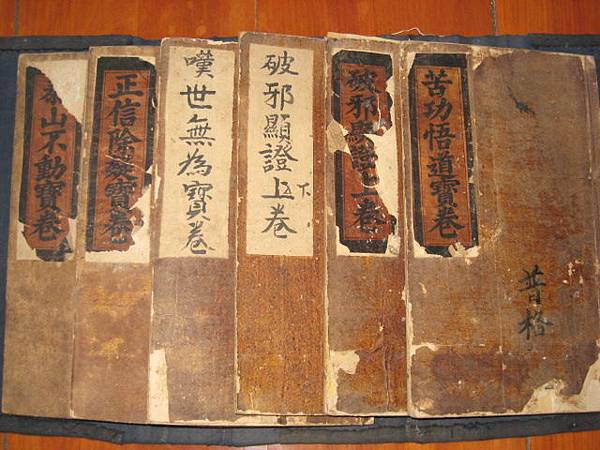 苦功悟道寶卷
普格
破邪顯證上卷
破邪顯證上下卷
嘆世無為寶卷
正信除疑寶卷
泰山不動寶卷